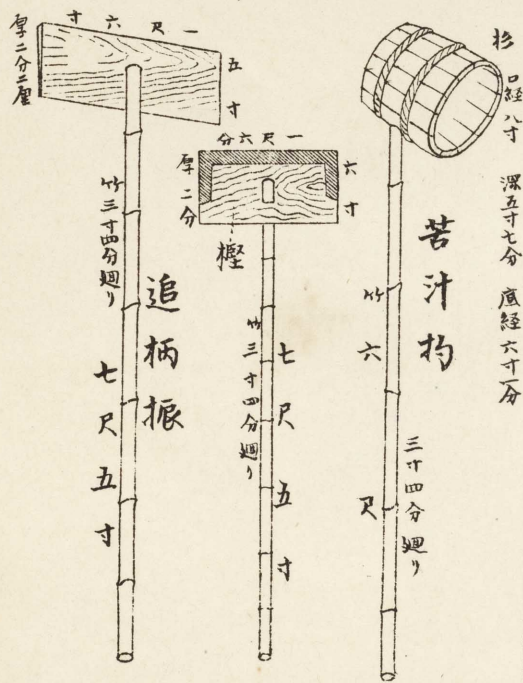 杉
口経 八寸
深五寸七分
底経 六寸一分
苦汁杓
竹 六尺
三寸四分廻り
一尺六分
六寸
厚二分
樫
竹三寸四分廻り
七尺五寸
一尺六寸
五寸
厚二分二厘
竹三寸四分廻り
追柄振
七尺五寸